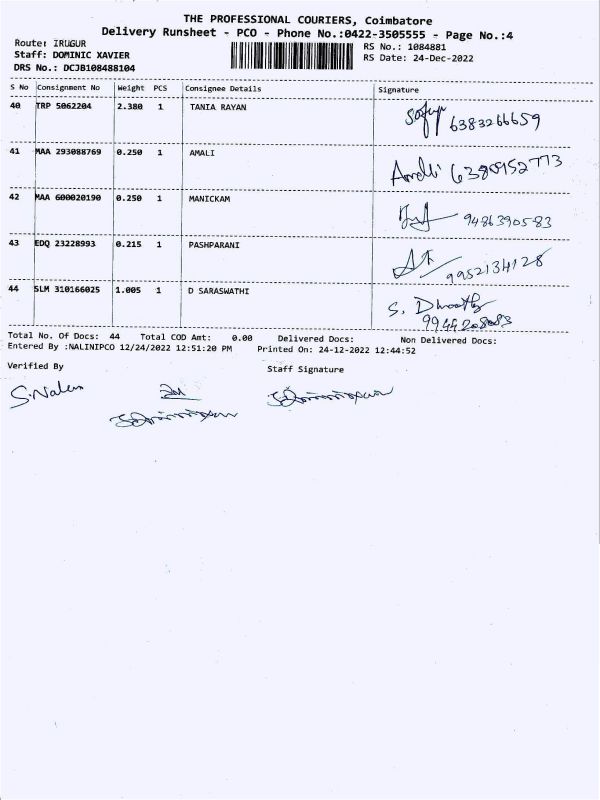 THE PROFESSIONAL COURIERS, Coimbatore
Delivery Runsheet - PCO - Phone No.:0422-3505555 - Page No.:4
Route: IRUGUR
Staff: DOMINIC XAVIER
DRS No.: DCJB108488104
RS No.: 1084881
RS Date: 24-Dec-2022
S No Consignment No Weight PCS Consignee Details Signature
40 TRP 5062204 2.380 1 TANIA RAYAN 6383266659
41 MAA 293088769 0.250 1 AMALI Amali 6380952773
42 MAA 600020190 0.250 1 MANICKAM 9486390583
43 EDQ 23228993 0.215 1 PASHPARANI 9952134128
44 SLM 310166025 1.005 1 D SARASWATHI S.
9944208083
Total No. Of Docs: 44 Total COD Amt: 0.00 Delivered Docs: Non Delivered Docs:
Entered By :NALINIPCO 12/24/2022 12:51:20 PM Printed On: 24-12-2022 12:44:52
Verified By Staff Signature